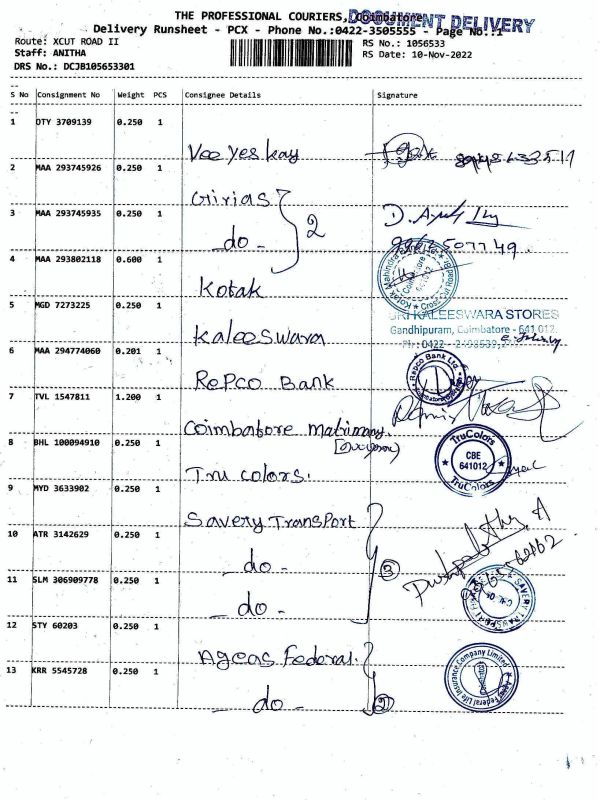 THE PROFESSIONAL COURIERS, Coimbatore
DOCUMENT DELIVERY
Delivery Runsheet - PCX - Phone No.:0422-3505555 - Page No.:1
Route: XCUT ROAD II
RS No.: 1056533
Staff: ANITHA
RS Date: 10-Nov-2022
DRS No.: DCJB105653301
S No Consignment No Weight PCS Consignee Details Signature
1 OTY 3709139 0.250 1
Vee yes kay
2 MAA 293745926 0.250 1
Girias
3 MAA 293745935 0.250 1
do - 2
4 MAA 293802118 0.600 1
Kotak
5 MGD 7273225 0.250 1
SRI KALEESWARA STORES
Gandhipuram, Coimbatore - 641 012.
Kaleeswara
6 MAA 294774060 0.201 1
Repco Bank Ltd.
Repco Bank
7 TVL 1547811 1.200 1
Coimbatore matrimony
8 BHL 100094910 0.250 1
TruColors
CBE
641012
TruColors
Tru colors.
9 MYD 3633902 0.250 1
Savery Transport
10 ATR 3142629 0.250 1
do - 3
11 SLM 306909778 0.250 1
do -
12 STY 60203 0.250 1
Ageas Federal
13 KRR 5545728 0.250 1
do - 2